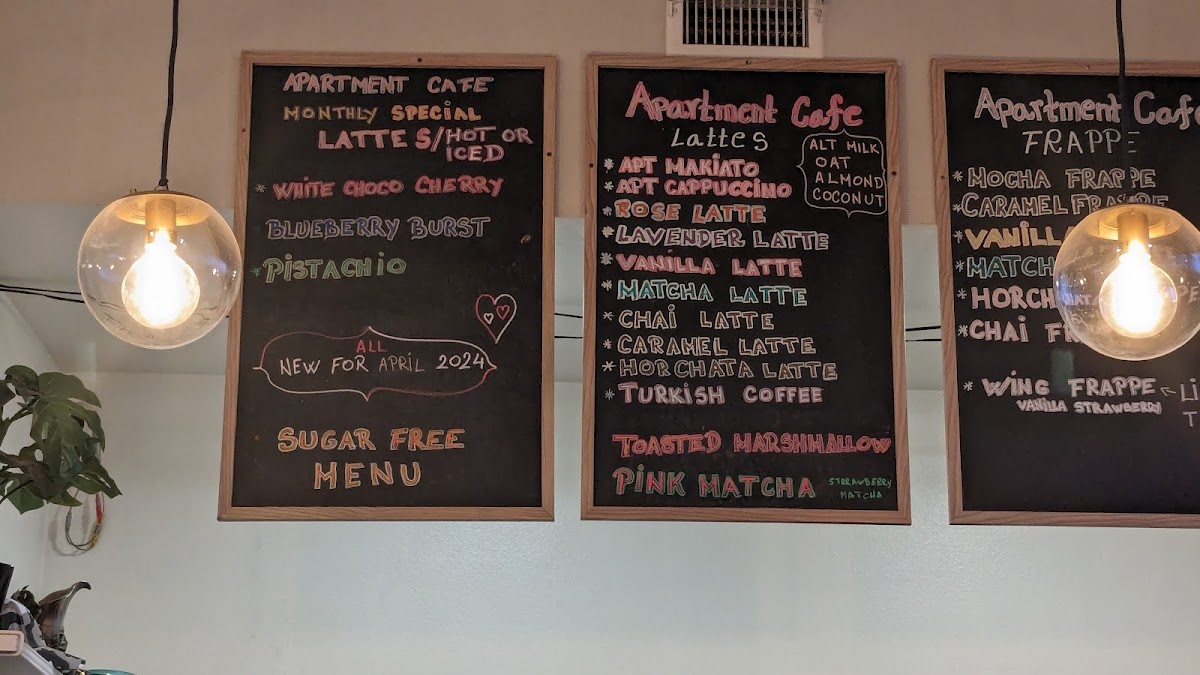 APARTMENT CAFE
MONTHLY SPECIAL
LATTE S/HOT OR
ICED
* WHITE CHOCO CHERRY
BLUEBERRY BURST
* PISTACHIO
ALL
NEW FOR APRIL 2024
SUGAR FREE
MENU
Apartment Cafe
Lattes
ALT MILK
OAT
ALMOND
COCONUT
* APT MAKIATO
* APT CAPPUCCINO
* ROSE LATTE
* LAVENDER LATTE
* VANILLA LATTE
* MATCHA LATTE
* CHAI LATTE
* CARAMEL LATTE
* HORCHATA LATTE
* TURKISH COFFEE
TOASTED MARSHMALLOW
PINK MATCHA
STRRAWBERRY
MATCHA
Apartment Cafe
FRAPPE
* MOCHA FRAPPE
* CARAMEL FRAPPE
* VANILLA
* MATCHA
*
* CHAI
* WING FRAPPE
VANILLA STRAWBERRY